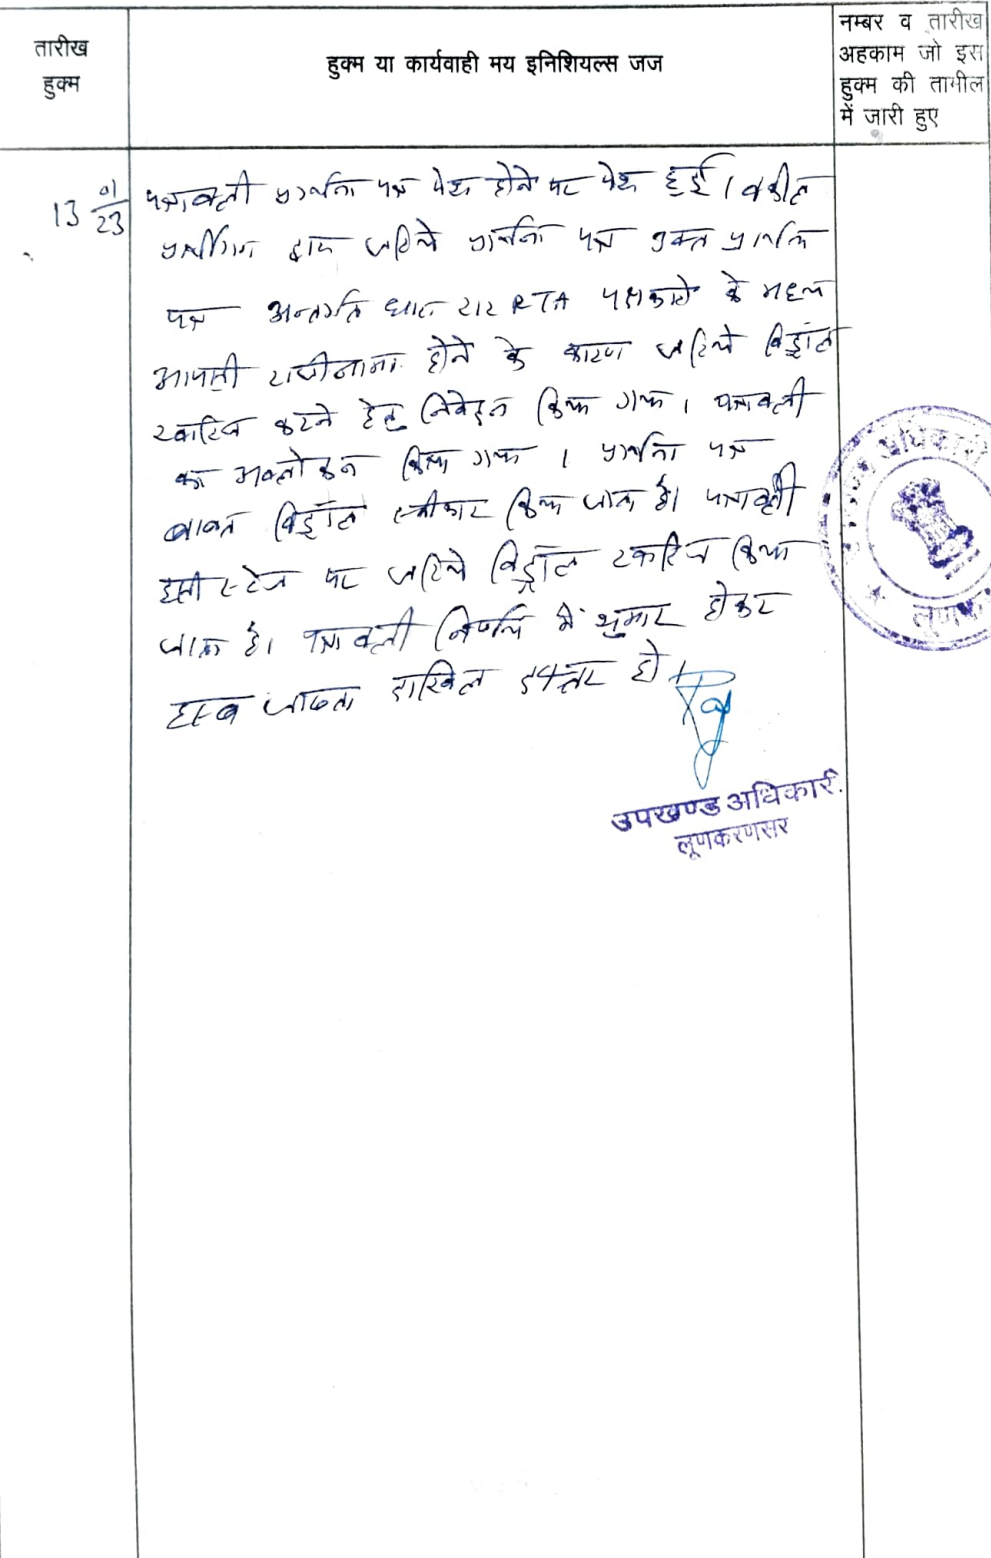 तारीख
हुक्म
हुक्म या कार्यवाही मय इनिशियल्स जज
नम्बर व तारीख
अहकाम जो इस
हुक्म की तामील
में जारी हुए
13 01/23
पत्रावली प्रार्थना पत्र पेश होने पर पेश हुई। वकील
प्रार्थीगण द्वारा जरिये प्रार्थना पत्र उक्त प्रार्थना
पत्र अन्तर्गत धारा 212 RTA पक्षकारो के मध्य
आपसी राजीनामा होने के कारण जरिये विड्रॉल
खारिज करने हेतु निवेदन किया गया। पत्रावली
का अवलोकन किया गया। प्रार्थना पत्र
बाबत विड्रॉल स्वीकार किया जाता है। पत्रावली
इसी स्टेज पर जरिये विड्रॉल खारिज किया
जाता है। पत्रावली निर्णय में शुमार होकर
हस्ब जाप्ता दाखिल दफ्तर हो।
उपखण्ड अधिकारी
लूणकरणसर
अधिकारी
लूणक